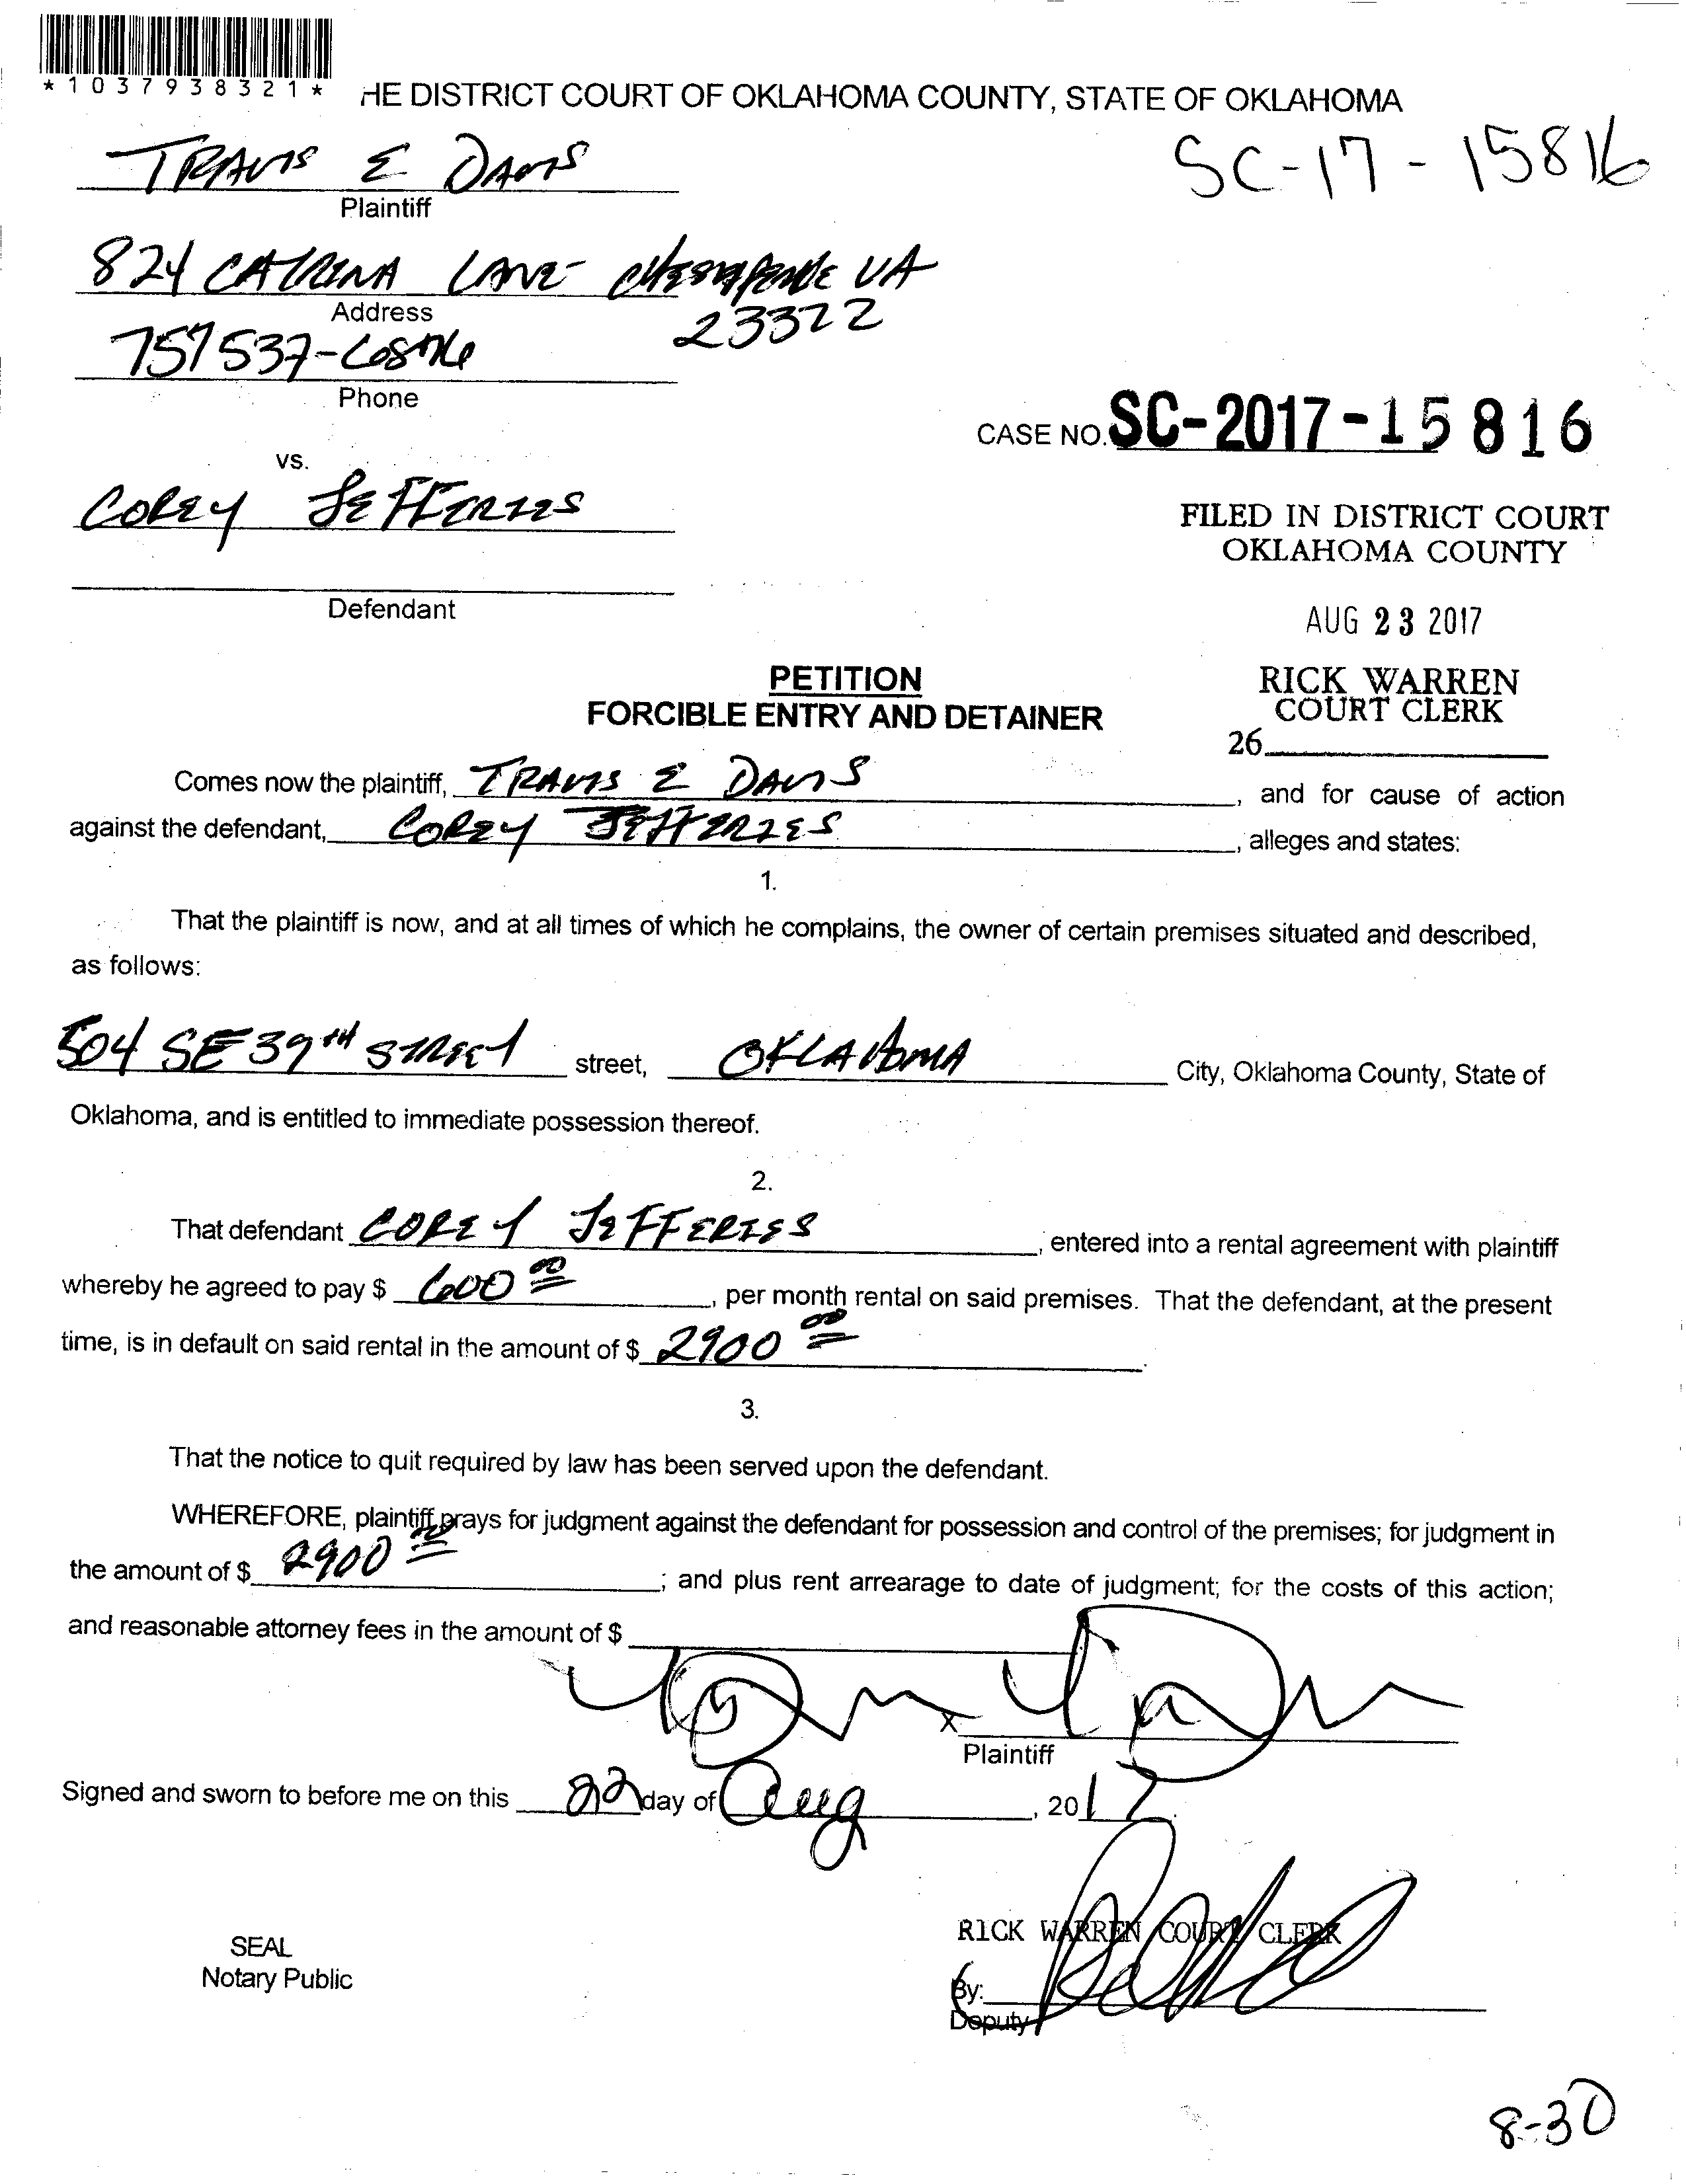 *1037938321*
HE DISTRICT COURT OF OKLAHOMA COUNTY, STATE OF OKLAHOMA
TRAVIS E DAVIS
SC-17-15816
Plaintiff
824 CATRINA LANE CHESAPEAKE VA
Address
23322
757 537-
Phone
CASE NO. SC-2017-15816
vs.
COREY JEFFERIES
FILED IN DISTRICT COURT
OKLAHOMA COUNTY
Defendant
AUG 23 2017
PETITION
RICK WARREN
FORCIBLE ENTRY AND DETAINER
COURT CLERK
26
Comes now the plaintiff, TRAVIS E DAVIS, and for cause of action
against the defendant, COREY JEFFERIES, alleges and states:
1.
That the plaintiff is now, and at all times of which he complains, the owner of certain premises situated and described,
as follows:
504 SE 39TH STREET street, OKLAHOMA City, Oklahoma County, State of
Oklahoma, and is entitled to immediate possession thereof.
2.
That defendant COREY JEFFERIES, entered into a rental agreement with plaintiff
whereby he agreed to pay $ 600 00, per month rental on said premises. That the defendant, at the present
time, is in default on said rental in the amount of $ 2900 00.
3.
That the notice to quit required by law has been served upon the defendant.
WHEREFORE, plaintiff prays for judgment against the defendant for possession and control of the premises; for judgment in
the amount of $ 2900 00; and plus rent arrearage to date of judgment; for the costs of this action;
and reasonable attorney fees in the amount of $
X
Plaintiff
Signed and sworn to before me on this 22 day of Aug, 2017.
RICK WARREN COURT CLERK
SEAL
Notary Public
By:
Deputy
8-30